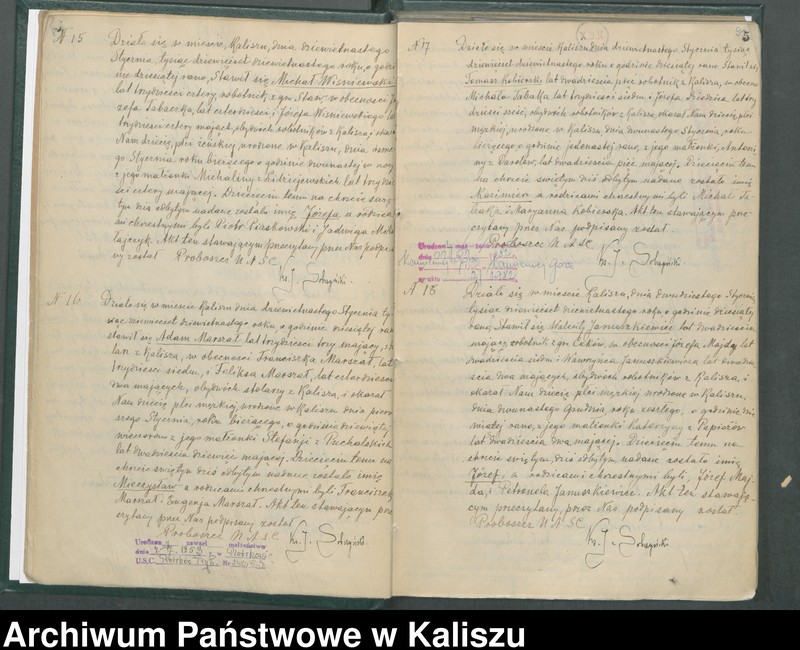 N 15
Działo się w mieście Kaliszu, dnia dziewiętnastego
Stycznia, tysiąc dziewięćset dziewiętnastego roku, o godzi
nie dziesiątej rano, Stawił się Michał Wiśniewski
lat trzydzieści cztery, robotnik z gm. Staw, w obecności Jó
zefa Tabaczka, lat czterdzieści i Józefa Wiśniewskiego lat
trzydzieści cztery mających, obydwóch robotników z Kalisza i okazał
Nam dziecię, płci żeńskiej urodzone w Kaliszu, dnia ósme
go Stycznia, roku bieżącego o godzinie dwunastej w nocy
z jego małżonki Michaliny z lat trzydzie
ści cztery mającej. Dziecięciu temu na chrzcie świę
tym dziś odbytym nadane zostało imię Józefa, a rodzica
mi chrzestnymi byli Piotr Piaskowski i Jadwiga
Akt ten stawającym przeczytany przez Nas podpisa
ny został Proboszcz N A S C
Ks. J. Sobczyński
N 16
Działo się w mieście Kaliszu dnia dziewiętnastego Stycznia ty
siąc dziewięćset dziewiętnastego roku, o godzinie dziesiątej rano
stawił się Adam Marszał lat trzydzieści trzy mający,
z Kalisza, w obecności Franciszka Marszał, lat
trzydzieści siedm, i Feliksa Marszał, lat czterdzieści
dwa mających, obydwóch stolarzy z Kalisza, i okazał
Nam dziecię płci męzkiej, urodzone w Kaliszu dnia pierw
szego Stycznia, roku bieżącego, o godzinie dziewiątej
wieczorem z jego małżonki Stefanji z Puchalskich
lat dwadzieścia dziewięć mającej. Dziecięciu temu na
chrzcie świętym dziś odbytym nadane zostało imię
Mieczysław a rodzicami chrzestnymi byli Franciszek
Marszał. Eugenja Marszał. Akt ten stawającym prze
czytany przez Nas podpisany został
Proboszcz N A S C
Ks. J. Sobczyński
Urodzona zawarł małżeństwo
dnia 1953 w
U.S.C. Nr
5
N 17
Działo się w mieście Kaliszu dnia dziewiętnastego Stycznia tysiąc
dziewięćset dziewiętnastego roku o godzinie dziesiątej rano Stawił się
Tomasz Kobierski lat dwadzieścia pięć robotnik z Kalisza, w obecno
Michała Tabaka lat trzydzieści siedm i Józefa Dziedzica lat trzy
dzieści sześć, obydwóch robotników z Kalisza, okazał Nam dziecię płci
męzkiej, urodzone w Kaliszu, dnia dwunastego Stycznia, roku
bieżącego o godzinie jedenastej rano, z jego małżonki Antoni
ny z lat dwadzieścia pięć mającej. Dziecięciu temu
na chrzcie świętym dziś odbytym nadane zostało imię
Kazimierz a rodzicami chrzestnymi byli Michał Ta
baka i Maryanna Kobierska. Akt ten stawającym prze
czytany przez Nas podpisany został.
Proboszcz N A S C
Ks. J. Sobczyński
dnia
w Kamiennej Górze
N 18
Działo się w mieście Kaliszu, dnia dwudziestego Stycznia,
tysiąc dziewięćset dziewiętnastego roku o godzinie dziesiątej
rano, Stawił się Walenty Januszkiewicz lat dwadzieścia
mający robotnik z gm. Ceków, w obecności Józefa Majdy lat
dwadzieścia siedm i Wawrzyńca Januszkiewicza lat dwadzie
ścia dwa mających, obydwóch robotników z Kalisza, i
okazał Nam dziecię płci męzkiej urodzone w Kaliszu,
dnia dwunastego Grudnia, roku zeszłego, o godzinie
rano, z jego małżonki Katarzyny z
lat dwadzieścia dwa mającej. Dziecięciu temu na
chrzcie świętym, dziś odbytym nadane zostało imię
Józef, a rodzicami chrzestnymi byli, Józef Maj
da, i Petronela Januszkiewicz. Akt ten stawają
cym przeczytany, przez Nas podpisany został.
Proboszcz N A S C
Ks. J. Sobczyński
Archiwum Państwowe w Kaliszu